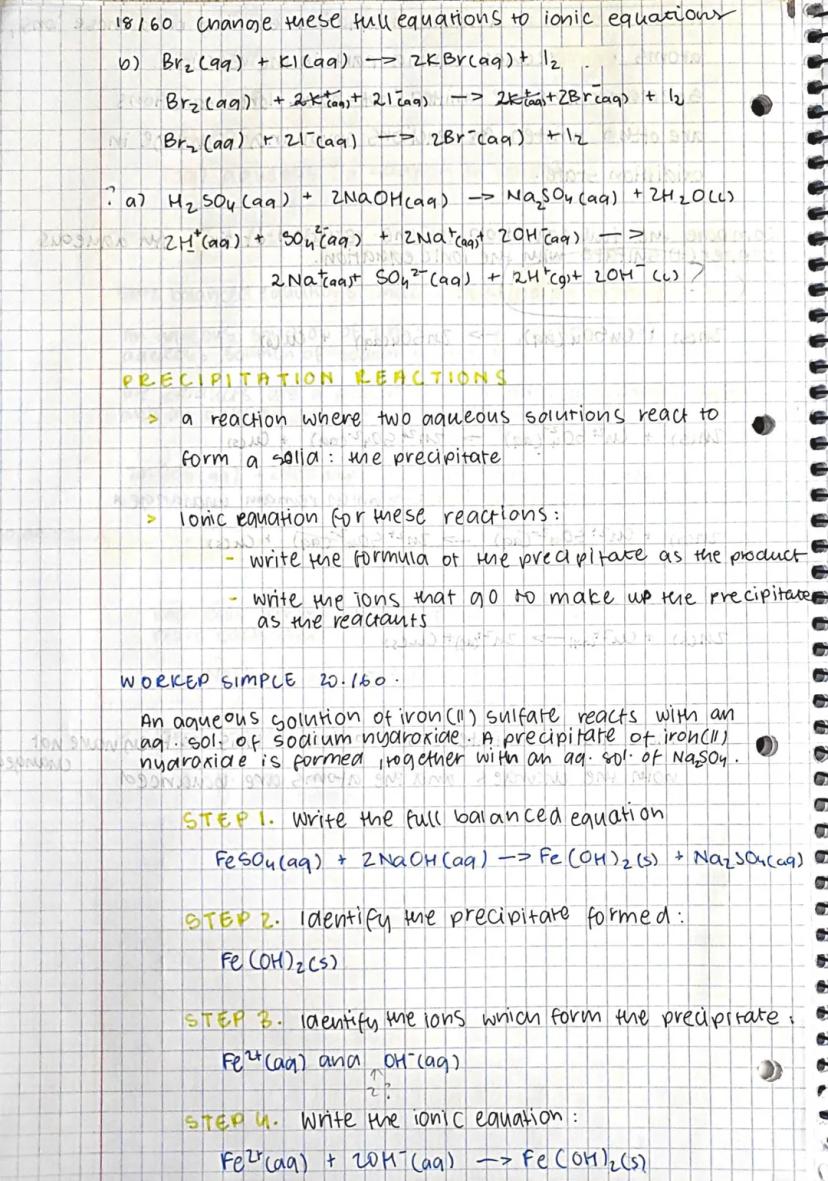 18/60 Change these full equations to ionic equations
b) Br₂(aq) + KI(aq) -> 2KBr(aq) + I₂
Br₂(aq) + 2K⁺(aq) + 2I⁻(aq) -> 2K⁺(aq) + 2Br⁻(aq) + I₂
Br₂(aq) + 2I⁻(aq) -> 2Br⁻(aq) + I₂
? a) H₂SO₄(aq) + 2NaOH(aq) -> Na₂SO₄(aq) + 2H₂O(l)
2H⁺(aq) + SO₄²⁻(aq) + 2Na⁺(aq) + 2OH⁻(aq) ->
2Na⁺(aq) + SO₄²⁻(aq) + 2H⁺(g) + 2OH⁻(l) ?
PRECIPITATION REACTIONS
> a reaction where two aqueous solutions react to
form a solid : the precipitate
> Ionic equation for these reactions:
- write the formula of the precipitate as the product
- write the ions that go to make up the precipitate
as the reactants
WORKED SIMPLE 20./60.
An aqueous solution of iron(II) sulfate reacts with an
aq. sol. of sodium hydroxide. A precipitate of iron(II)
hydroxide is formed, together with an aq. sol. of Na₂SO₄.
STEP 1. Write the full balanced equation
FeSO₄(aq) + 2NaOH(aq) -> Fe(OH)₂(s) + Na₂SO₄(aq)
STEP 2. Identify the precipitate formed:
Fe(OH)₂(s)
STEP 3. Identify the ions which form the precipitate:
Fe²⁺(aq) and OH⁻(aq)
↑
2?
STEP 4. Write the ionic equation:
Fe²⁺(aq) + 2OH⁻(aq) -> Fe(OH)₂(s)